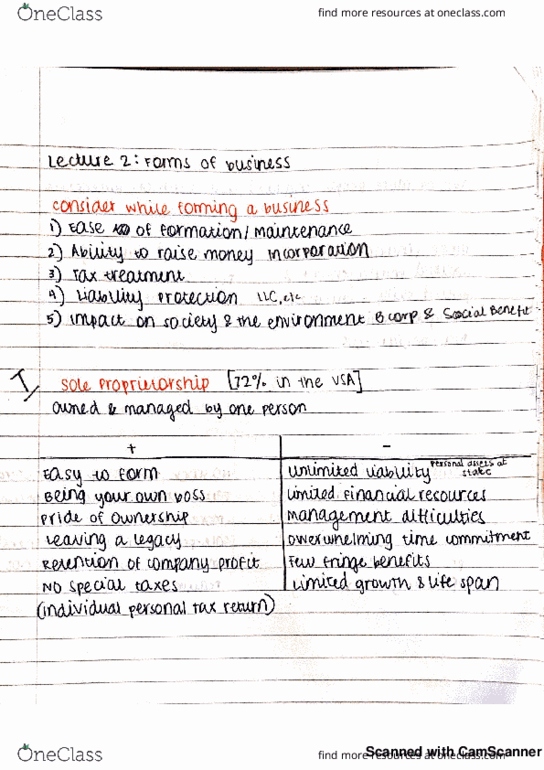 OneClass
find more resources at oneclass.com
Lecture 2: Forms of business
consider while forming a business
1) Ease of formation/maintenance
2) Ability to raise money incorporation
3) Tax treatment
4) Liability Protection LLC, etc
5) Impact on society & the environment B corp & Social Benefit
I/ Sole Proprietorship [72% in the USA]
owned & managed by one person
+ −
Easy to form unlimited liability Personal assets at stake
Being your own boss limited financial resources
Pride of ownership management difficulties
Leaving a legacy overwhelming time commitment
Retention of company profit Few fringe benefits
No special taxes Limited growth & life span
(individual personal tax return)
OneClass
find more resources at oneclass.com
Scanned with CamScanner